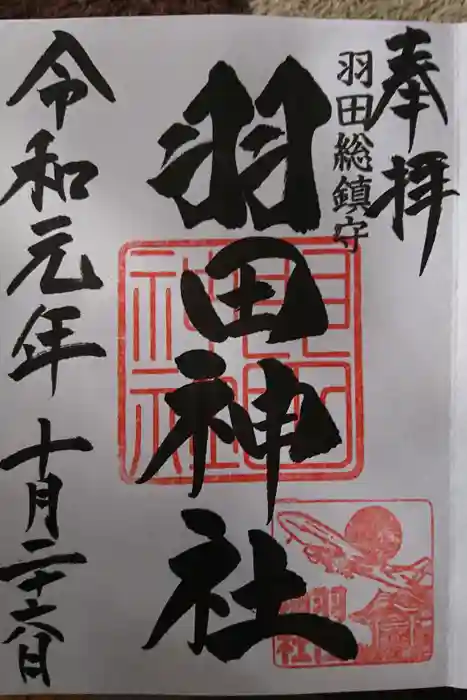 奉拝
羽田総鎮守
羽田神社
令和元年 十月二十六日
羽田
神社